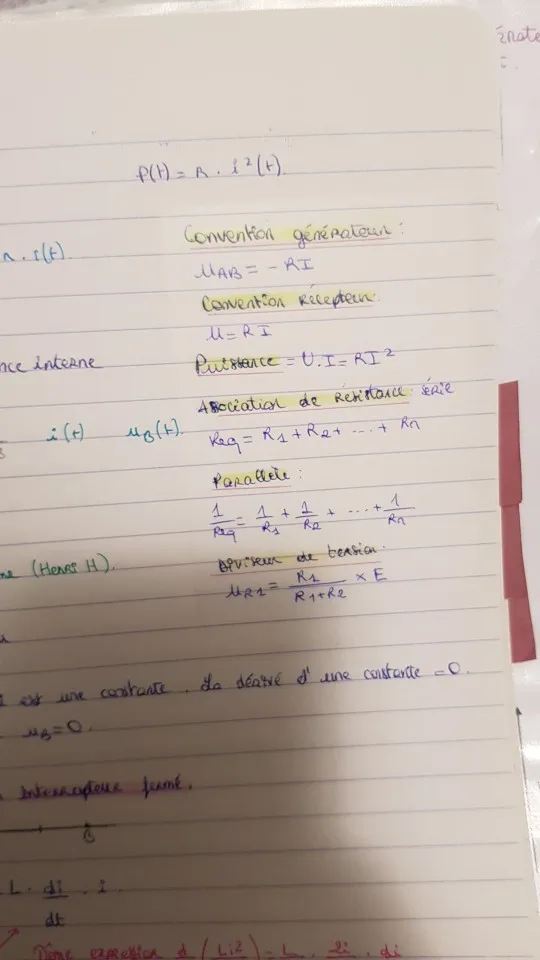 P(t) = R . i²(t).
R . i(t).
Convention générateur :
u_AB = - RI
Convention récepteur.
u = RI
interne
Puissance = U.I = RI²
Association de résistance : série
i(t) u_B(t).
Req = R1 + R2 + ... + Rn
Parallèle :
1/Req = 1/R1 + 1/R2 + ... + 1/Rn
(Henry H).
Diviseur de tension.
u_R1 = R1/(R1+R2) x E
i est une constante. La dérivé d'une constante = 0.
u_B = 0.
Interrupteur fermé.
B
L . di/dt . i
expression d (Li²) = L . 2i . di